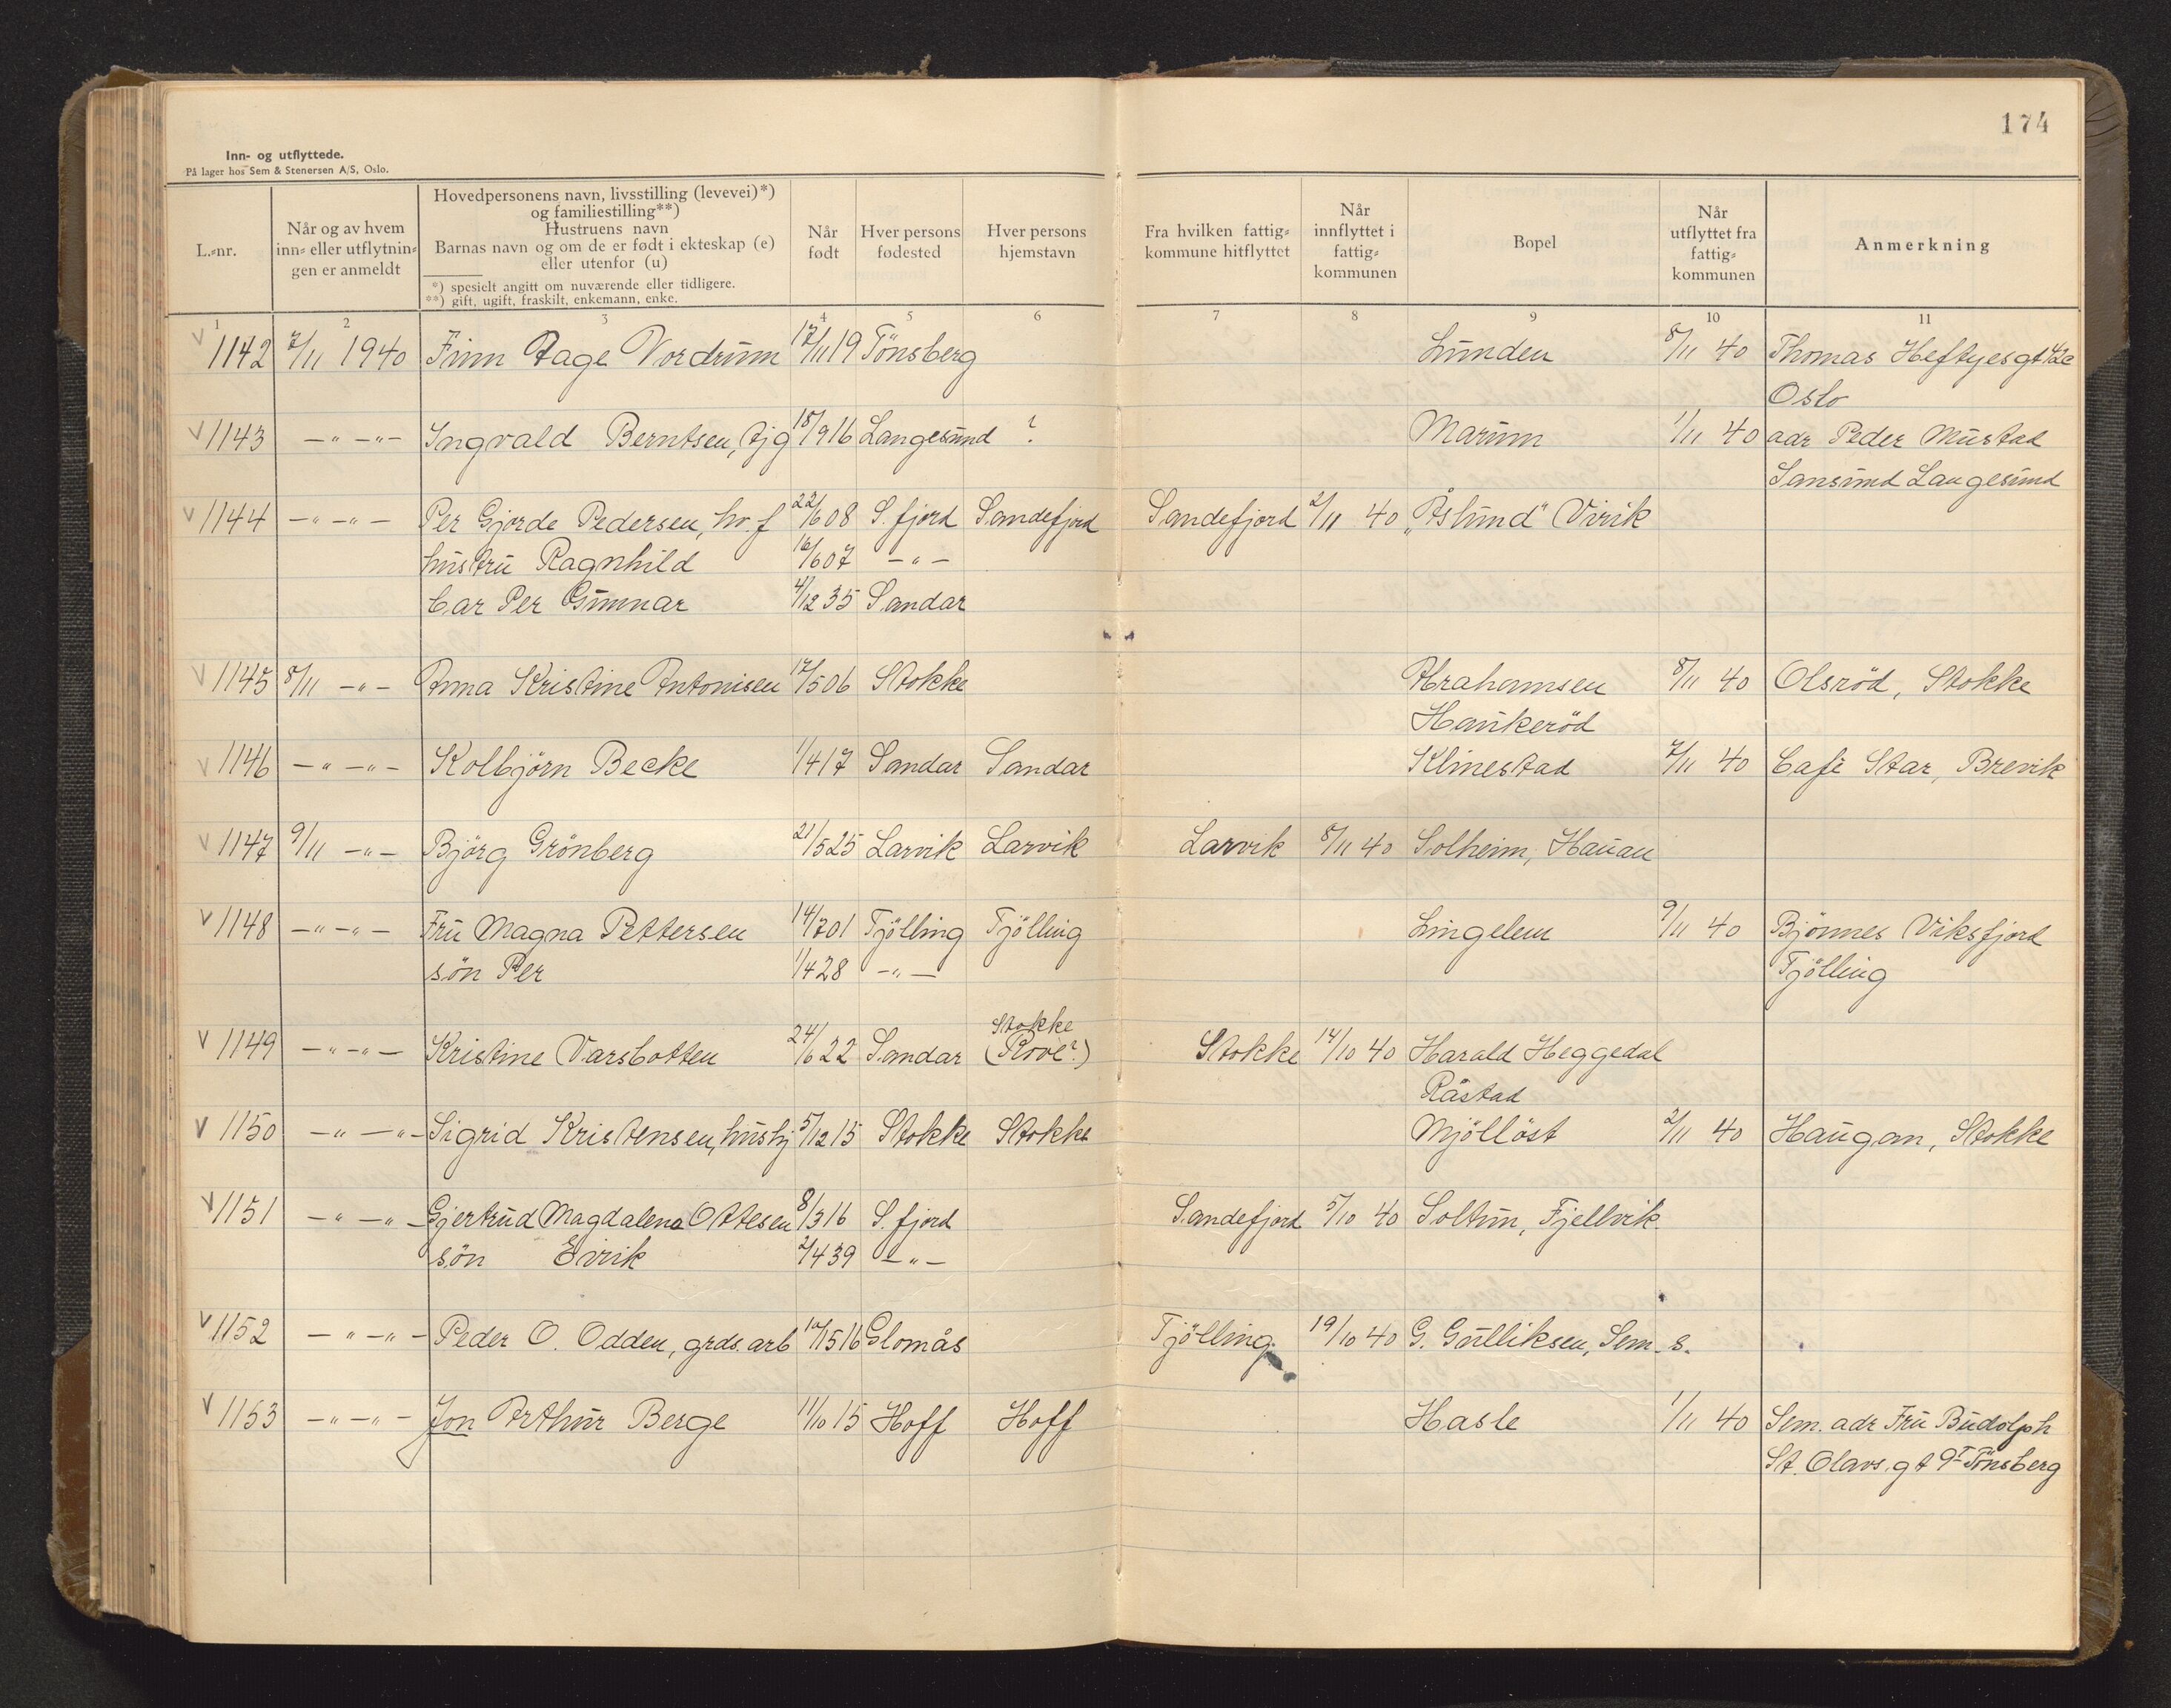 174
Inn- og utflyttede.
På lager hos Sem & Stenersen A/S, Oslo.
L.-nr.
Når og av hvem inn- eller utflytnin- gen er anmeldt
Hovedpersonens navn, livsstilling (levevei)*)
og familiestilling**)
Hustruens navn
Barnas navn og om de er født i ekteskap (e)
eller utenfor (u)
*) spesielt angitt om nuværende eller tidligere.
**) gift, ugift, fraskilt, enkemann, enke.
Når født
Hver persons fødested
Hver persons hjemstavn
Fra hvilken fattig- kommune hitflyttet
Når innflyttet i fattig- kommunen
Bopel
Når utflyttet fra fattig- kommunen
Anmerkning
1 2 3 4 5 6 7 8 9 10 11
V 1142 7/11 1940 Finn Aage Vordrum 17/11 19 Tönsberg Lunden 8/11 40 Thomas Heftyesgt 42c
Oslo
V 1143 -"- -"- Ingvald Berntsen, tjg 18/9 16 Langesund ? Marum 1/11 40 adr Peder Mustad
Sansund Langesund
V 1144 -"- -"- Per Gjorde Pedersen, hv.f 22/6 08 S.fjord Sandefjord Sandefjord 2/11 40 "Åslund" Virik
hustru Ragnhild 16/6 07 -"-
bar Per Gunnar 4/12 35 Sandar
V 1145 8/11 -"- Anna Kristine Antonisen 17/5 06 Stokke Abrahamsen 8/11 40 Olsröd, Stokke
Haukeröd
V 1146 -"- -"- Kolbjörn Becke 1/4 17 Sandar Sandar Klinestad 7/11 40 Cafè Star, Brevik
V 1147 9/11 -"- Björg Grönberg 21/5 25 Larvik Larvik Larvik 8/11 40 Solheim, Hauan
V 1148 -"- -"- Fru Magna Pettersen 14/7 01 Tjölling Tjölling Lingelem 9/11 40 Bjönnes Viksfjord
sön Per 1/4 28 -"- Tjölling
Stokke
V 1149 -"- -"- Kristine Varsbotten 24/6 22 Sandar (Rove?) Stokke 14/10 40 Harald Heggedal
Råstad
V 1150 -"- -"- Sigrid Kristensen, hushj 5/12 15 Stokke Stokke Mjöllöst 2/11 40 Haugan, Stokke
V 1151 -"- -"- Gjertrud Magdalena Ottesen 8/3 16 S.fjord Sandefjord 5/10 40 Soltun, Fjellvik
sön Eirik 2/4 39 -"-
V 1152 -"- -"- Peder O. Odden, grds.arb 10/5 16 Glomås Tjölling. 19/10 40 G. Gulliksen, Sem. s.
V 1153 -"- -"- Jon Arthur Berge 11/10 15 Hoff Hoff Hasle 1/11 40 Sem. adr Fru Budolph
St. Olavs.gt 9I Tönsberg